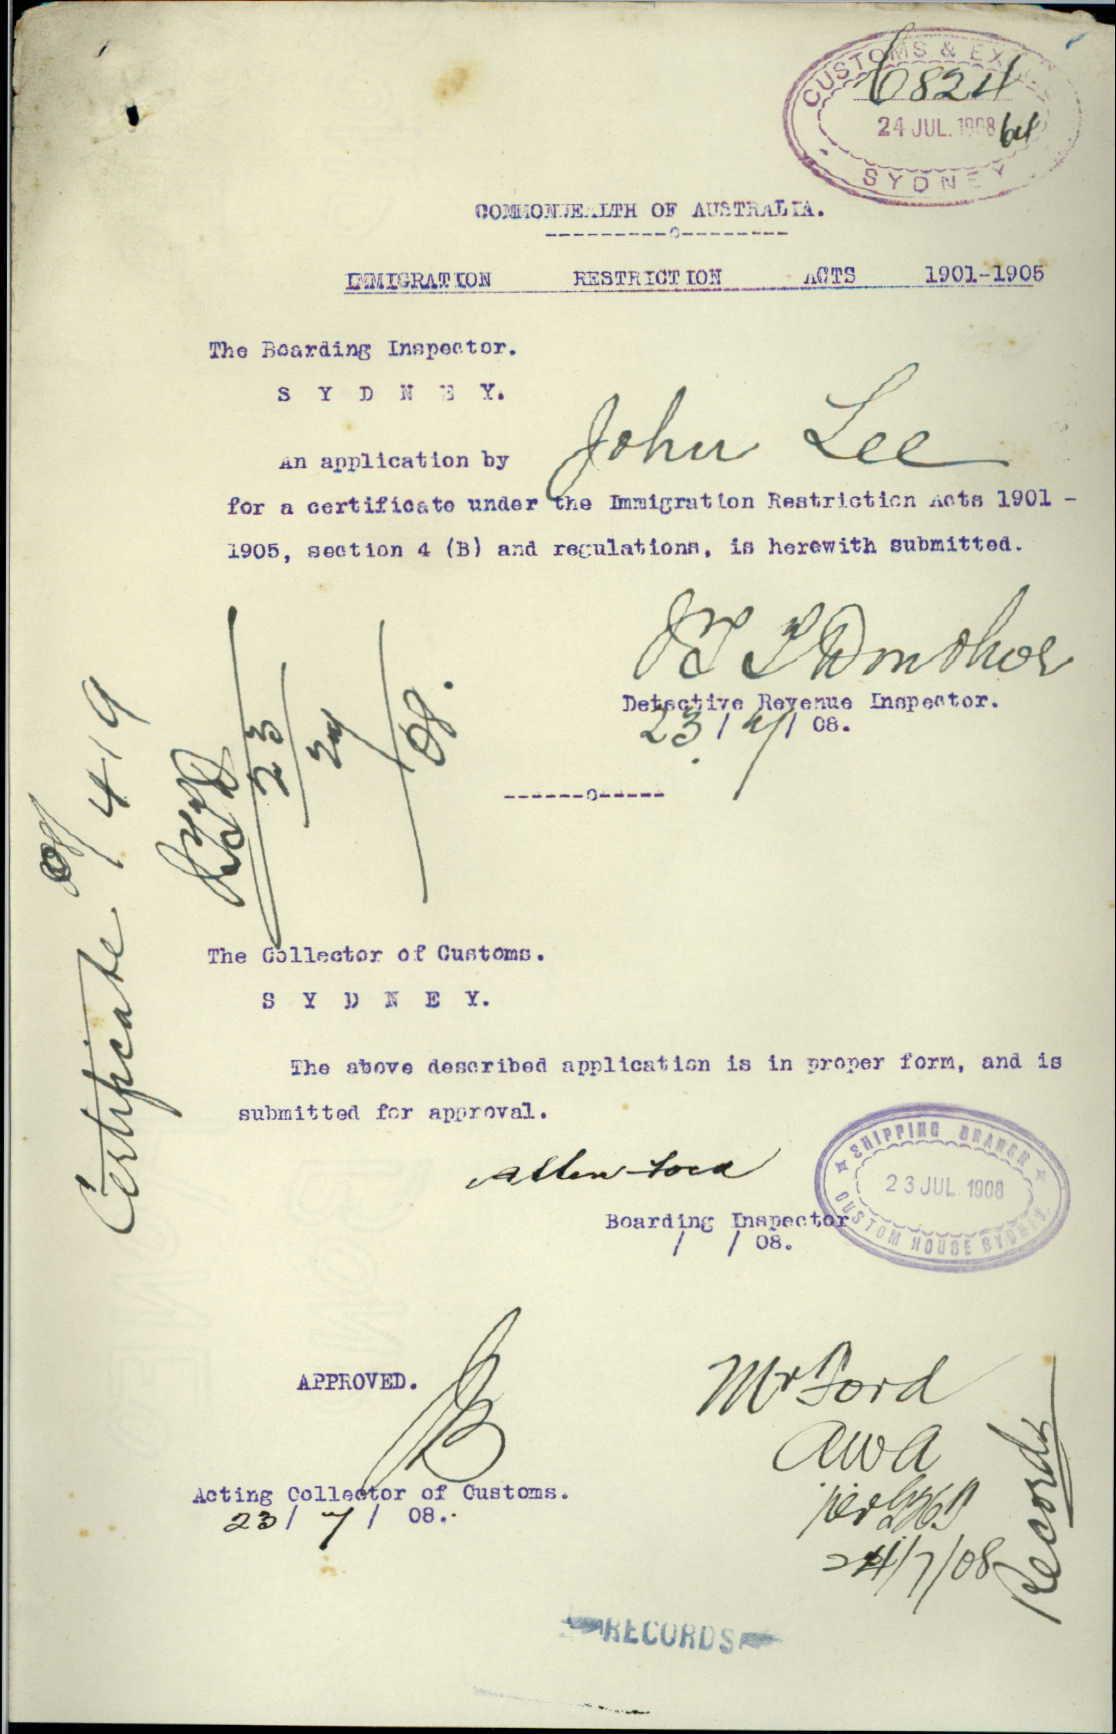 CUSTOMS & EX
6824
24 JUL. 1908 64
SYDNEY
COMMONWEALTH OF AUSTRALIA.
---------o--------
IMMIGRATION RESTRICTION ACTS 1901-1905
The Boarding Inspector.
S Y D N E Y.
An application by John Lee
for a certificate under the Immigration Restriction Acts 1901 -
1905, section 4 (B) and regulations, is herewith submitted.
Donohoe
Detective Revenue Inspector.
23/7/08.
------o-----
23
7
08.
Certificate 08/419
The Collector of Customs.
S Y D N E Y.
The above described application is in proper form, and is
submitted for approval.
SHIPPING BRANCH
23 JUL 1908
CUSTOM HOUSE SYDNEY.
Boarding Inspector
/ / 08.
APPROVED.
Acting Collector of Customs.
23/ 7/ 08.
Mr Ford
AWA
per
24/7/08
Records
RECORDS